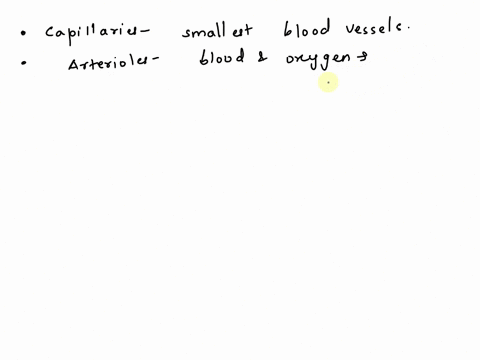 • Capillaries- smallest blood vessels.
• Arterioles- blood & oxygen →